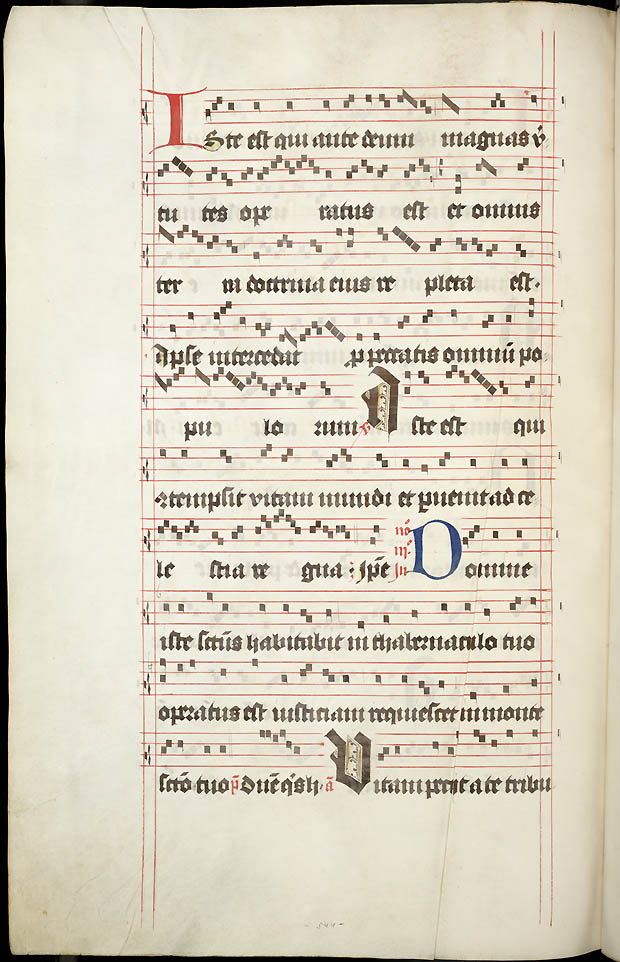 Iste est qui ante deum magnas v̾
tu tes ope ratus est et omnis
ter ra doctrina eius re pleta est.
Ipse intercedat p̱ peccatis omniū po
pu lo rum ℣ Iste est qui
ɔtempsit vitam mundi et p̱uenit ad ce
le stia re gna. ip̄e In iij. no Domine
iste sct̄us habitabit in thabernaculo tuo
operatus est iusticiam requiescet in monte
sct̄o tuo p̄ Dn̄e q̄s h. a̅ Vitam petijt a te tribu
- 544 -